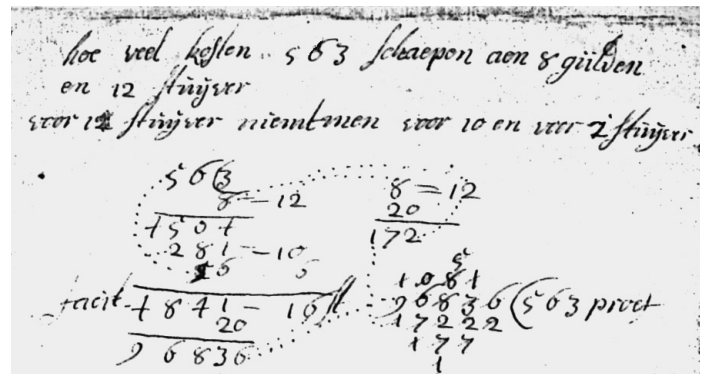 hoe veel kosten 563 schaepen aen 8 gulden
en 12 stuijver
voor 12 stuijver niemtmen voor 10 en voor 2 stuijver
563
8 — 12
4504
281 — 10
56 6
facit 4841 — 16
20
96836
8 = 12
20
172
5
1081
96836 (563 proef
17222
177
1